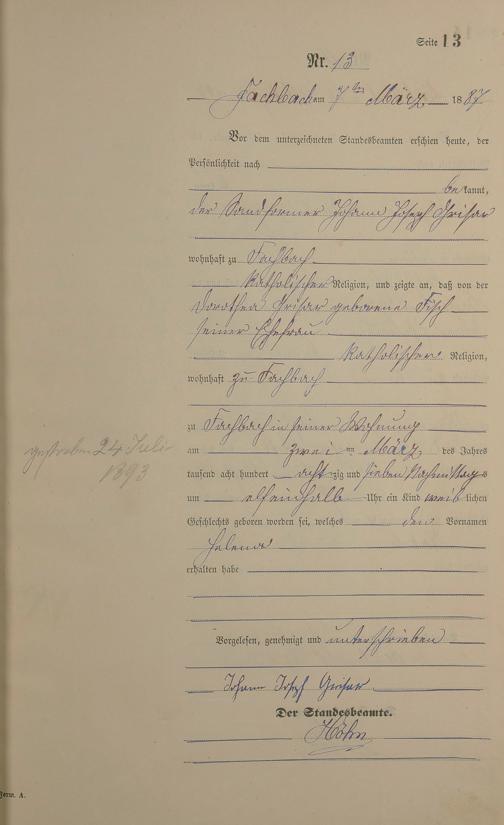 Seite 13
Nr. 13
Fachbach am 7ten März 1887
Vor dem unterzeichneten Standesbeamten erschien heute, der
Persönlichkeit nach
bekannt,
der Sandformer Johann Joseph Grisar
wohnhaft zu Fachbach
katholischer Religion, und zeigte an, daß von der
Dorothea Grisar geborene Fisch
seiner Ehefrau
katholischer Religion,
wohnhaft zu Fachbach
zu Fachbach in seiner Wohnung
am zwei ten März des Jahres
tausend acht hundert acht zig und sieben Nachmittags
um elfeinhalb Uhr ein Kind weiblichen
Geschlechts geboren worden sei, welches den Vornamen
Helena
erhalten habe
gestorben 24 Juli
1893
Vorgelesen, genehmigt und unterschrieben
Johann Joseph Grisar
Der Standesbeamte.
Höhn
Form. A.